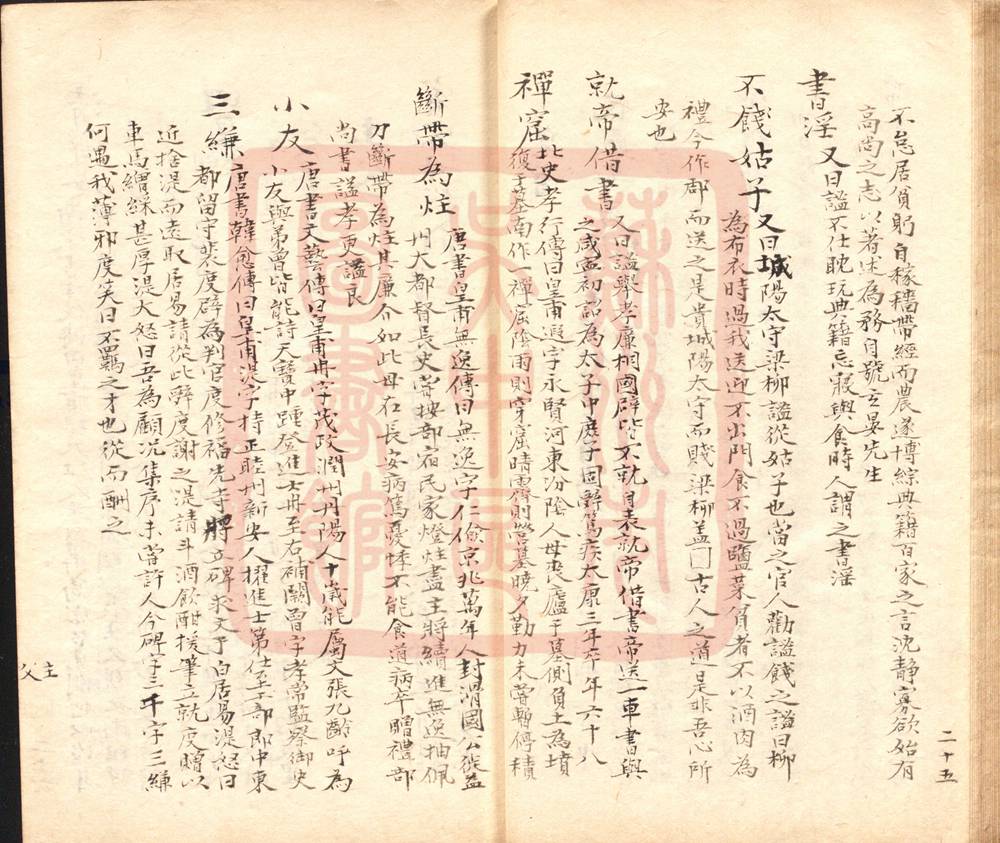 不怠居貧躬自稼穡帶經而農遂博綜典籍百家之言沈静寡欲始有
高尚之志以著述為務自號玄晏先生
書淫 又曰謐不仕耽玩典籍忘寢與食時人謂之書淫
不餞姑子 又曰城陽太守梁柳謐從姑子也當之官人勸謐餞之謐曰柳
為布衣時過我送迎不出門食不過鹽菜貧者不以酒肉為
禮今作郡而送之是貴城陽太守而賤梁柳盖囗古人之道是非吾心所
安也
就帝借書 又曰謐舉孝廉相國辟皆不就自表就帝借書帝送一車書與
之咸寧初詔為太子中庶子固辭篤疾太康三年卒年六十八
禪窟 北史孝行傳曰皇甫遐字永賢河東汾陰人母喪廬于墓側負土為墳
復于墓南作一禪窟陰雨則穿窟晴霽則營墓曉夕勤力未嘗暫停積
斷帶為炷 唐書皇甫無逸傳曰無逸字仁儉京兆萬年人封滑國公從益
州大都督長史嘗按部宿民家燈炷盡主將續進無逸抽佩
刀斷帶為炷其廉介如此母在長安病篤憂悸不能食道病卒贈禮部
尚書謚孝更謚良
小友 唐書文藝傳曰皇甫冉字茂政潤州丹陽人十歲能屬文張九齡呼為
小友與弟曾皆能詩天寶中踵登進士冉至右補闕曾字孝常監察御史
三縑 唐書韓愈傳曰皇甫湜字持正睦州新安人擢進士第仕至工部郎中東
都留守裴度辟為判官度修福先寺將立碑求文于白居易湜怒曰
近捨湜而遠取居易請從此辭度謝之湜請斗酒飲酣援筆立就度贈以
車馬繒綵甚厚湜大怒曰吾為顧况集序未嘗許人今碑字三千字三縑
何遇我薄邪度笑曰不羈之才也從而酬之
二十五